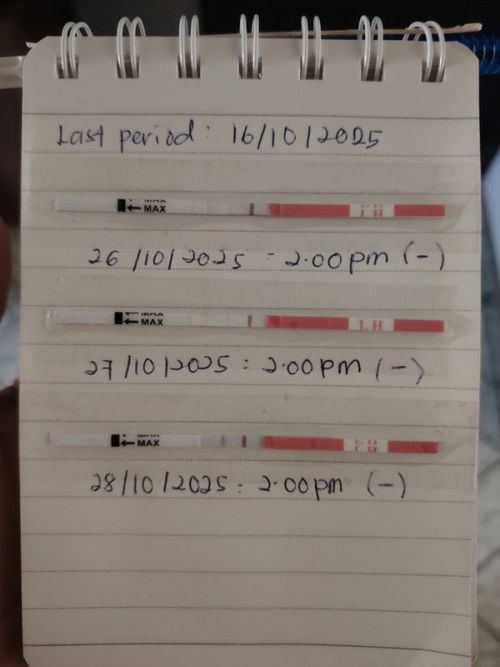 Last period: 16/10/2025
MAX
LH
26/10/2025 = 2.00pm (-)
MAX
LH
27/10/2025 : 2.00pm (-)
MAX
LH
28/10/2025 : 2.00pm (-)